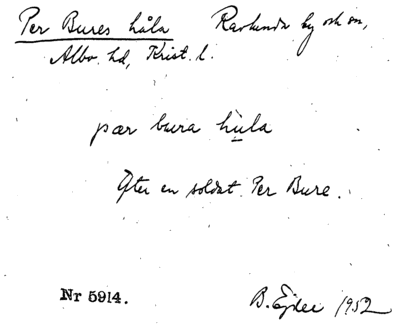 Per Bures håla Ravlunda by och sn,
Albo hd, Krist. l.
pær bura hula
Efter en soldat Per Bure.
Nr 5914.
B. Ejder 1952